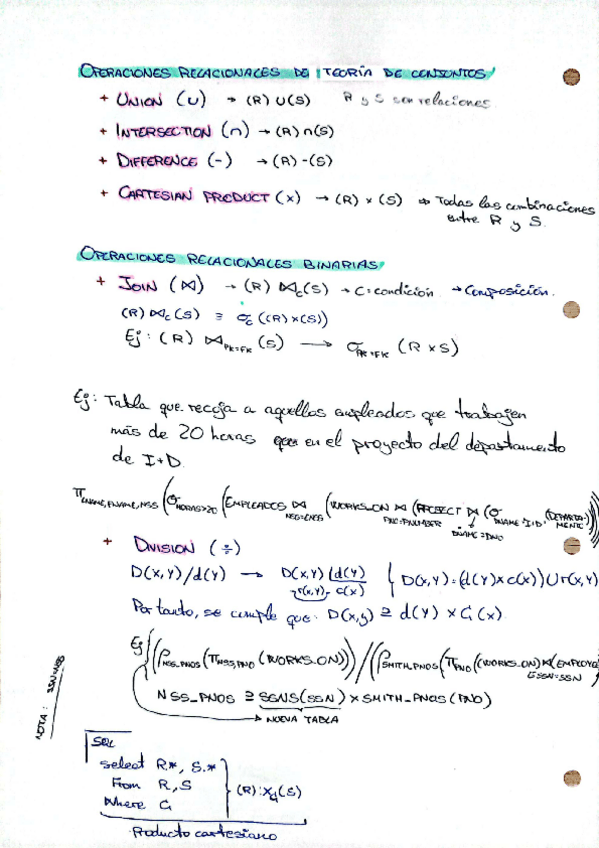 OPERACIONES RELACIONALES DE TEORÍA DE CONJUNTOS
+ UNION (∪) → (R) ∪ (S) R y S son relaciones
+ INTERSECTION (∩) → (R) ∩ (S)
+ DIFFERENCE (-) → (R) - (S)
+ CARTESIAN PRODUCT (x) → (R) x (S) ⇒ Todas las combinaciones
entre R y S.
OPERACIONES RELACIONALES BINARIAS
+ JOIN (⋈) → (R) ⋈c (S) → C = condición → Composición.
(R) ⋈c (S) ≡ σc ((R) x (S))
Ej: (R) ⋈PK=FK (S) → σPK=FK (R x S)
Ej: Tabla que recoja a aquellos empleados que trabajen
más de 20 horas en el proyecto del departamento
de I+D.
(σHORAS>20 (EMPLEADOS ⋈ (WORKS_ON ⋈ (PROJECT ⋈ (σ
+ DIVISION (÷)
D(x,y)/d(y) → D(x,y) | d(y)
r(x,y) c(x)
D(x,y) = (d(y) x c(x)) ∪ r(x,y)
Por tanto, se cumple que: D(x,y) ⊇ d(y) x C(x).
Ej ((ρNSS_PNOS (πNSS,PNO (WORKS_ON))) / ((ρSMITH_PNOS (πPNO ((WORKS_ON) ⋈ (EMPLOY
ESSN=SSN
NSS_PNOS ⊇ SSNS(SSN) x SMITH_PNOS(PNO)
→ NUEVA TABLA
NOTA: SSN=NSS
SQL
select R*, S.*
From R, S
Where C
(R) (S)
Producto cartesiano